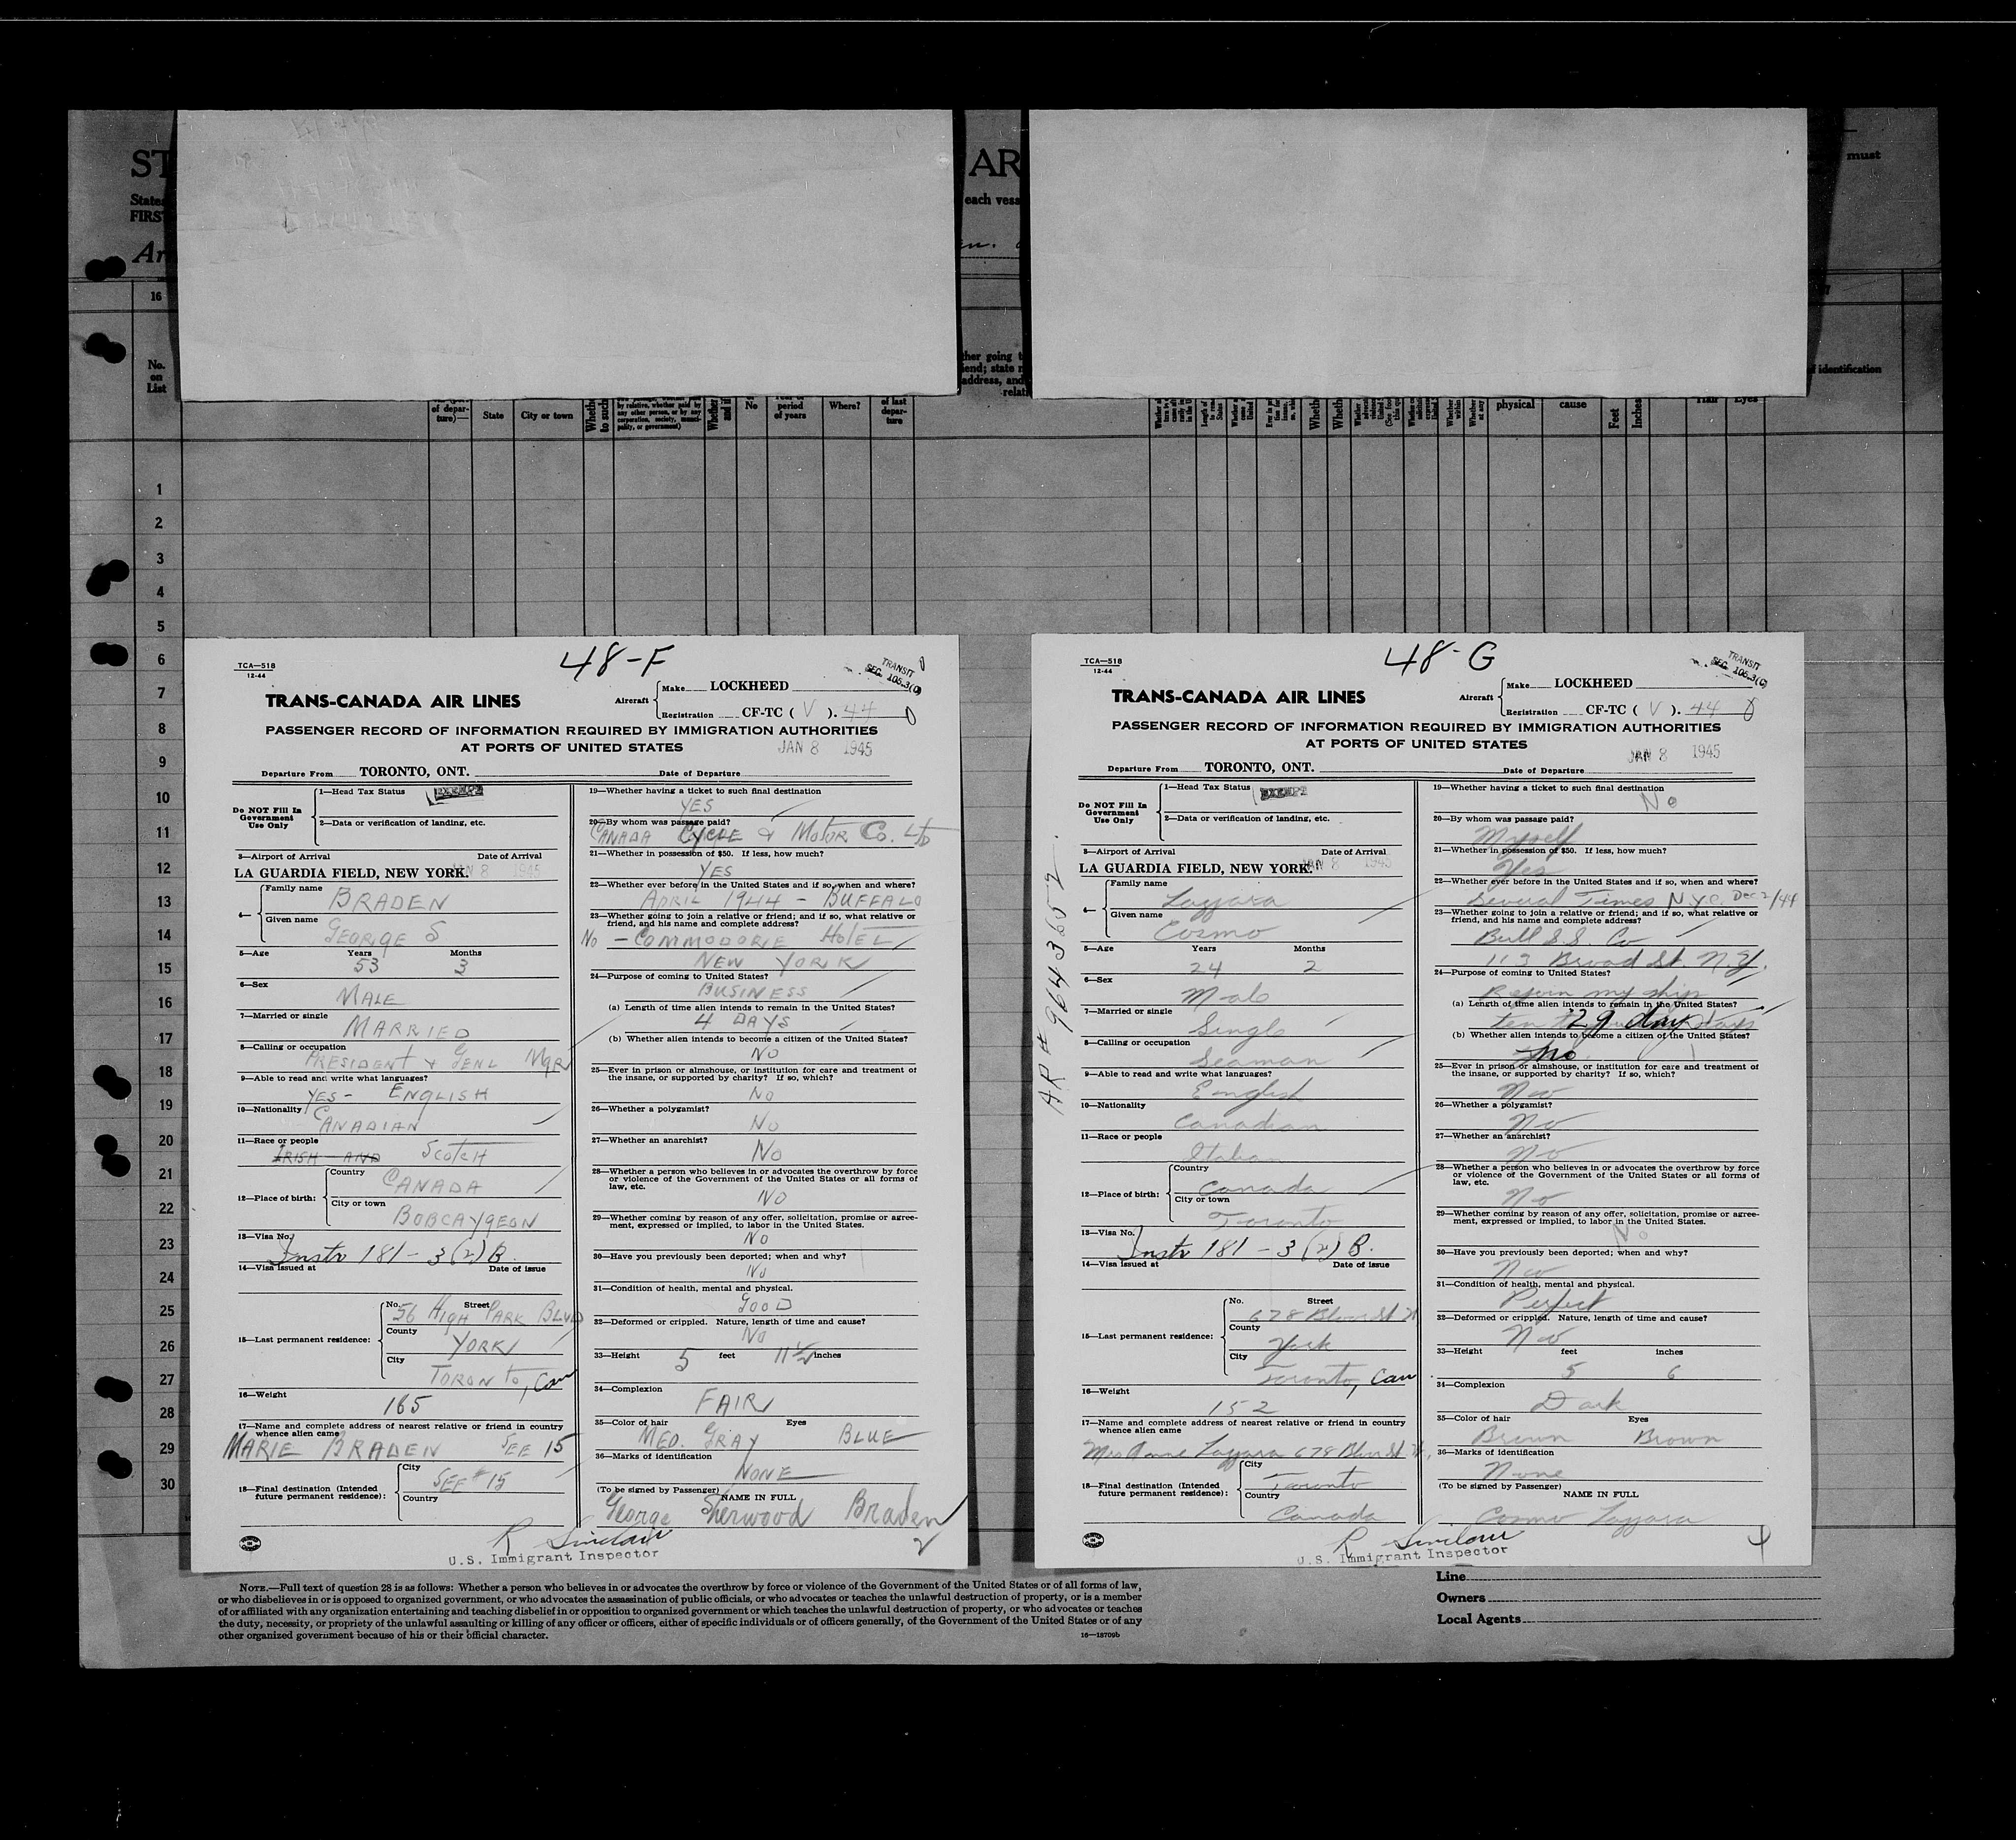 ST
AR
must
States
each vess
FIRST
Ar
16
No.
on
List
her going t
iend; state r
address, and
relati
f identification
of depar-
ture)—
State
City or town
by relative, whether paid by
any other person, or by any
corporation, society, munici-
pality, or government)
No
period
of years
Where?
of last
depar-
ture
physical
cause
Feet
Inches
Hair
Eyes
1
2
3
4
5
6
7
8
9
10
11
12
13
14
15
16
17
18
19
20
21
22
23
24
25
26
27
28
29
30
48-F
TCA—518
12-44
TRANSIT
SEC. 105.3(C)
TRANS-CANADA AIR LINES
Aircraft
Make LOCKHEED
Registration CF-TC ( V ). 44
PASSENGER RECORD OF INFORMATION REQUIRED BY IMMIGRATION AUTHORITIES
AT PORTS OF UNITED STATES
JAN 8 1945
Departure From TORONTO, ONT. Date of Departure
Do NOT Fill In
Government
Use Only
1—Head Tax Status EXEMPT
2—Data or verification of landing, etc.
3—Airport of Arrival Date of Arrival
LA GUARDIA FIELD, NEW YORK. JAN 8 1945
4—
Family name
BRADEN
Given name
GEORGE S
5—Age Years Months
53 3
6—Sex
MALE
7—Married or single
MARRIED
8—Calling or occupation
PRESIDENT & GENL MGR
9—Able to read and write what languages?
YES - ENGLISH
10—Nationality
CANADIAN
11—Race or people
IRISH AND SCOTCH
12—Place of birth:
Country
CANADA
City or town
BOBCAYGEON
13—Visa No.
Instr 181 - 3 (2) B.
14—Visa issued at Date of issue
15—Last permanent residence:
No. Street
56 HIGH PARK BLVD
County
YORK
City
TORONTO, Can
16—Weight
165
17—Name and complete address of nearest relative or friend in country
whence alien came
MARIE BRADEN SEE 15
18—Final destination (Intended
future permanent residence):
City
SEE #15
Country
19—Whether having a ticket to such final destination
YES
20—By whom was passage paid?
CANADA CYCLE & MOTOR CO. LTD
21—Whether in possession of $50. If less, how much?
YES
22—Whether ever before in the United States and if so, when and where?
APRIL 1944 - BUFFALO
23—Whether going to join a relative or friend; and if so, what relative or
friend, and his name and complete address?
NO - COMMODORE HOTEL
NEW YORK
24—Purpose of coming to United States?
BUSINESS
(a) Length of time alien intends to remain in the United States?
4 DAYS
(b) Whether alien intends to become a citizen of the United States?
NO
25—Ever in prison or almshouse, or institution for care and treatment of
the insane, or supported by charity? If so, which?
NO
26—Whether a polygamist?
NO
27—Whether an anarchist?
NO
28—Whether a person who believes in or advocates the overthrow by force
or violence of the Government of the United States or all forms of
law, etc.
NO
29—Whether coming by reason of any offer, solicitation, promise or agree-
ment, expressed or implied, to labor in the United States.
NO
30—Have you previously been deported; when and why?
NO
31—Condition of health, mental and physical.
GOOD
32—Deformed or crippled. Nature, length of time and cause?
NO
33—Height 5 feet 11½ inches
34—Complexion
FAIR
35—Color of hair Eyes
MED. GRAY BLUE
36—Marks of identification
NONE
(To be signed by Passenger) NAME IN FULL
George Sherwood Braden
R Sinclair
U.S. Immigrant Inspector
2
48-G
TCA—518
12-44
TRANSIT
SEC. 105.3(C)
TRANS-CANADA AIR LINES
Aircraft
Make LOCKHEED
Registration CF-TC ( V ). 44
PASSENGER RECORD OF INFORMATION REQUIRED BY IMMIGRATION AUTHORITIES
AT PORTS OF UNITED STATES
JAN 8 1945
Departure From TORONTO, ONT. Date of Departure
Do NOT Fill In
Government
Use Only
1—Head Tax Status EXEMPT
2—Data or verification of landing, etc.
3—Airport of Arrival Date of Arrival
LA GUARDIA FIELD, NEW YORK. JAN 8 1945
4—
Family name
Lazzara
Given name
Cosmo
5—Age Years Months
24 2
6—Sex
Male
7—Married or single
Single
8—Calling or occupation
Seaman
9—Able to read and write what languages?
English
10—Nationality
Canadian
11—Race or people
Italian
12—Place of birth:
Country
Canada
City or town
Toronto
13—Visa No.
Instr 181 - 3 (2) B.
14—Visa issued at Date of issue
15—Last permanent residence:
No. Street
678 Bloor St W
County
York
City
Toronto, Can
16—Weight
152
17—Name and complete address of nearest relative or friend in country
whence alien came
Mrs Anne Lazzara 678 Bloor St W.
18—Final destination (Intended
future permanent residence):
City
Toronto
Country
Canada
19—Whether having a ticket to such final destination
No
20—By whom was passage paid?
Myself
21—Whether in possession of $50. If less, how much?
Yes
22—Whether ever before in the United States and if so, when and where?
Several Times N.Y.C. Dec 2/44
23—Whether going to join a relative or friend; and if so, what relative or
friend, and his name and complete address?
Bull S.S. Co
113 Broad St. N.Y.
24—Purpose of coming to United States?
Rejoin my ship
(a) Length of time alien intends to remain in the United States?
29 days
(b) Whether alien intends to become a citizen of the United States?
no
25—Ever in prison or almshouse, or institution for care and treatment of
the insane, or supported by charity? If so, which?
No
26—Whether a polygamist?
No
27—Whether an anarchist?
No
28—Whether a person who believes in or advocates the overthrow by force
or violence of the Government of the United States or all forms of
law, etc.
No
29—Whether coming by reason of any offer, solicitation, promise or agree-
ment, expressed or implied, to labor in the United States.
No
30—Have you previously been deported; when and why?
No
31—Condition of health, mental and physical.
Perfect
32—Deformed or crippled. Nature, length of time and cause?
No
33—Height feet inches
5 6
34—Complexion
Dark
35—Color of hair Eyes
Brown Brown
36—Marks of identification
None
(To be signed by Passenger) NAME IN FULL
Cosmo Lazzara
R Sinclair
U.S. Immigrant Inspector
NOTE.—Full text of question 28 is as follows: Whether a person who believes in or advocates the overthrow by force or violence of the Government of the United States or of all forms of law,
or who disbelieves in or is opposed to organized government, or who advocates the assassination of public officials, or who advocates or teaches the unlawful destruction of property, or is a member
of or affiliated with any organization entertaining and teaching disbelief in or opposition to organized government or which teaches the unlawful destruction of property, or who advocates or teaches
the duty, necessity, or propriety of the unlawful assaulting or killing of any officer or officers, either of specific individuals or of officers generally, of the Government of the United States or of any
other organized government because of his or their official character.
16—18709b
Line
Owners
Local Agents